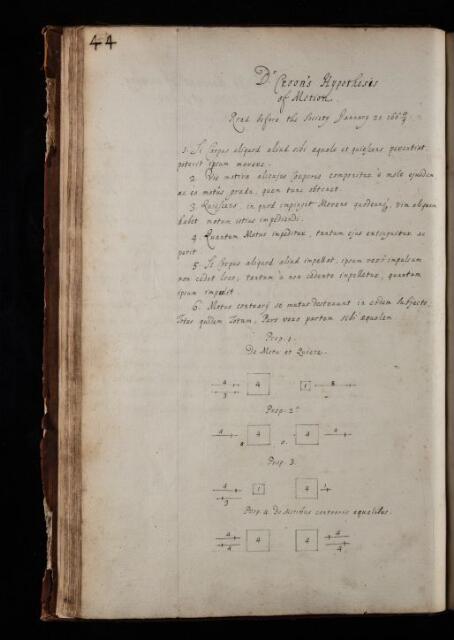 44
Dr Croon's Hypothesis
of Motion.
Read before the Society January 21 166
1. Si Corpus aliquod aliud sibi equale et quiescens percutiat,
poterit ipsum movere.
2. Vis motiva alicujus Corporis componitur a mole ejusdem,
ac eo motus gradu, quem tunc obtinet.
3. Quiescens, in quod impingit Movens quodcunq, vim aliquam
habet motum istius impediendi.
4. Quantum Motus impeditur, tantum ejus extinguitur ac
perit.
5. Si Corpus aliquod aliud impellat, ipsum vero impulsum
non cedat loco, tantum a non cedente impellitur, quantum
ipsum impulit.
6. Motus contrarij se mutuo destruunt in eodem subjecto,
Totus quidem Totum, Pars vero partem sibi equalem.
Prop. 1.
De Motu et Quiete.
4 3 4 1 8
Prop. 2a
4 4 0 4 4
Prop. 3.
4 3 1 4 1
Prop. 4. De Motibus contrariis equalibus.
4 4 4 4 4 4